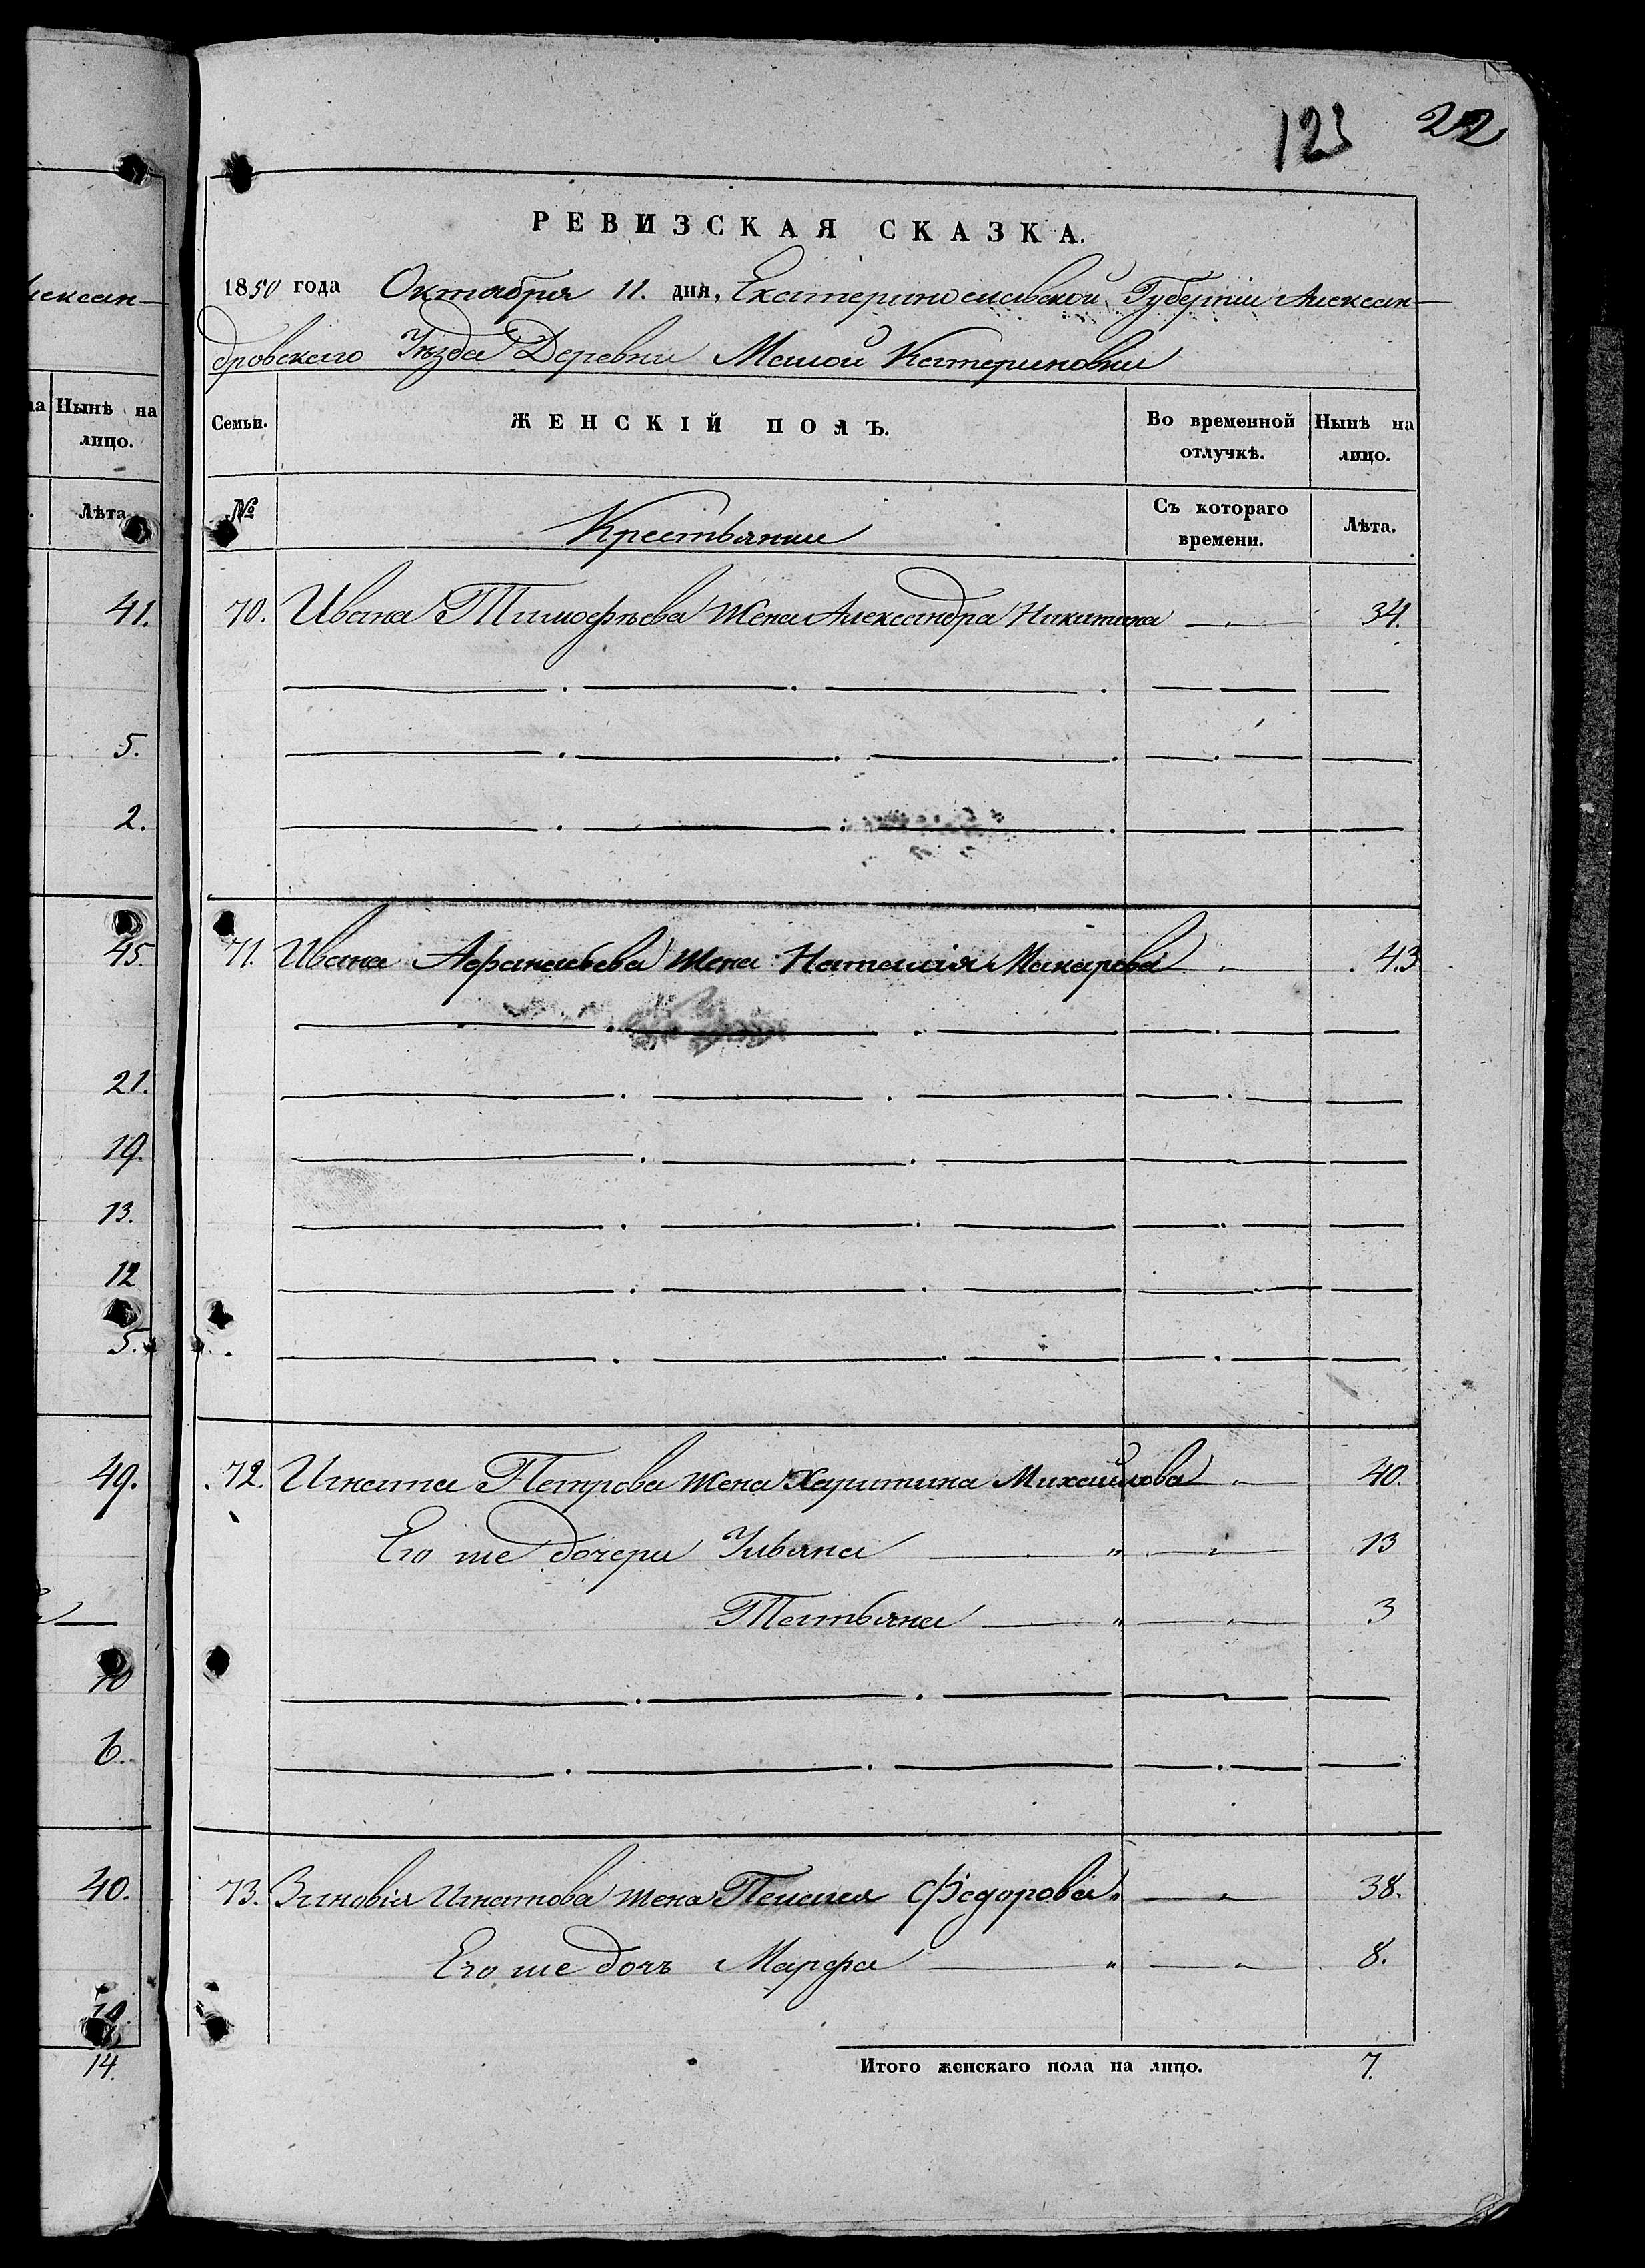 123 22
РЕВИЗСКАЯ СКАЗКА.
1850 года Октября 11. дня, Екатеринославской Губерніи Алексан-
дровскаго Уѣзда Деревни Малой Катериновки
ксан-
Нынѣ на
лицо.
Лѣта
41.
5.
2.
45.
21.
19.
13.
12
5.
49.
10
6.
40.
14.
Семьи. ЖЕНСКІЙ ПОЛЪ. Во временной отлучкѣ. Нынѣ на лицо.
№ Крестьянии Съ котораго времени. Лѣта.
70. Ивана Тимофѣева жена Александра Никитина 34.
71. Ивана Афанасьева жена Наталія Макарова 43
72. Игната Петрова жена Харитина Михайлова 40.
Его же дочери Ульяна " 13
Татьяна " 3
73. Зиновія Игнатова жена Пелагея Федорова " 38.
Его же дочь Марфа " 8.
Итого женскаго пола на лицо. 7.